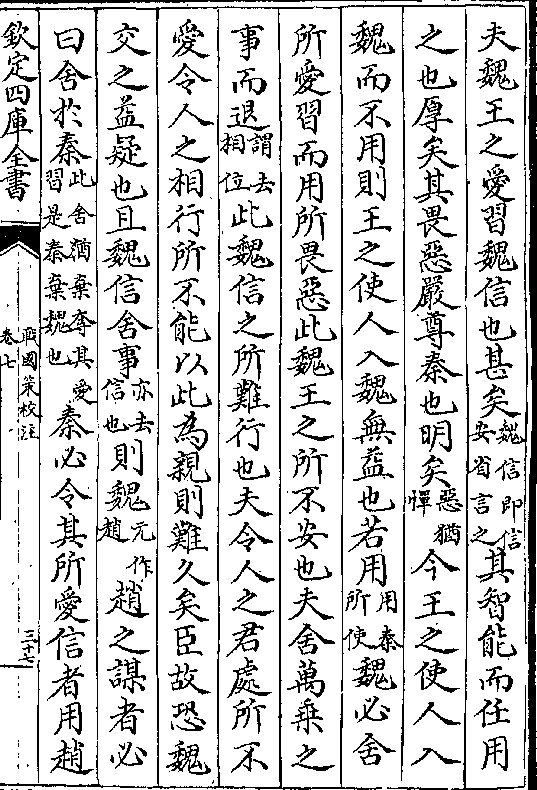 夫魏王之愛習魏信也甚矣魏信即信安省言之其智能而任用
之也厚矣其畏惡嚴尊秦也明矣惡猶憚今王之使人入
魏而不用則王之使人入魏無益也若用用秦所使魏必舍
所愛習而用所畏惡此魏王之所不安也夫舍萬乘之
事而退謂去相位此魏信之所難行也夫令人之君處所不
愛令人之相行所不能以此為親則難久矣臣故恐魏
交之益疑也且魏信舍事亦去信也則魏元作趙趙之謀者必
曰舍於秦此舍猶棄奪其愛習是秦棄魏也秦必令其所愛信者用趙
欽定四庫全書
戰國策校注
卷七
三十七